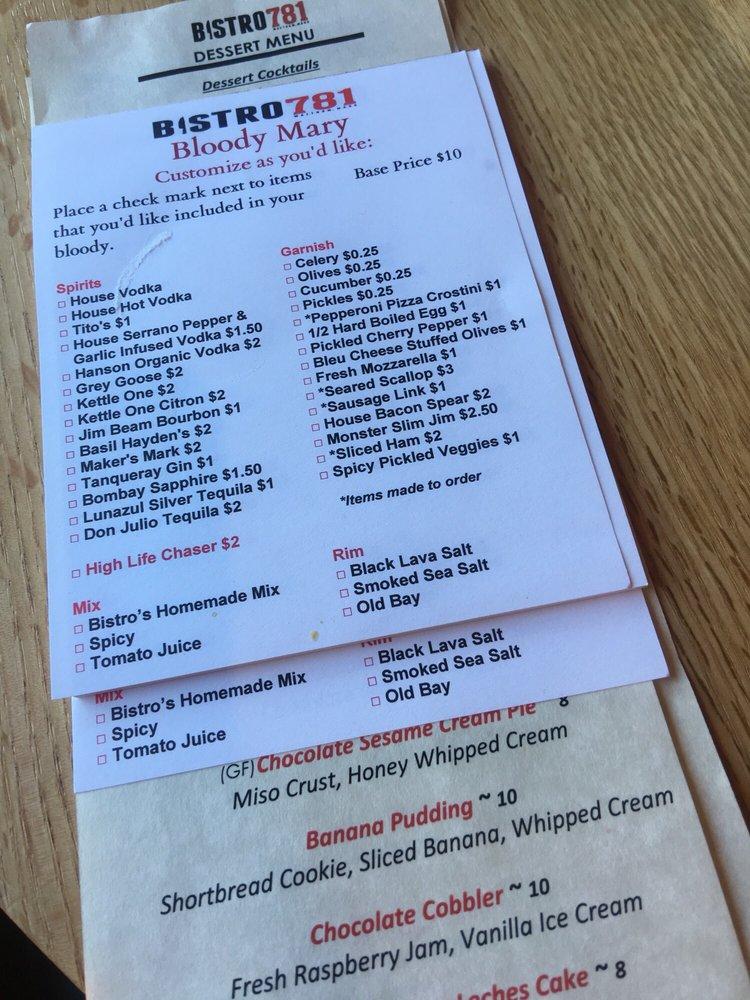 BISTRO781
DESSERT MENU
Dessert Cocktails
BISTRO781
Bloody Mary
Customize as you'd like:
Place a check mark next to items
that you'd like included in your
bloody.
Base Price $10
Spirits
House Vodka
House Hot Vodka
Tito's $1
House Serrano Pepper &
Garlic Infused Vodka $1.50
Hanson Organic Vodka $2
Grey Goose $2
Kettle One $2
Kettle One Citron $2
Jim Beam Bourbon $1
Basil Hayden's $2
Maker's Mark $2
Tanqueray Gin $1
Bombay Sapphire $1.50
Lunazul Silver Tequila $1
Don Julio Tequila $2
High Life Chaser $2
Mix
Bistro's Homemade Mix
Spicy
Tomato Juice
Garnish
Celery $0.25
Olives $0.25
Cucumber $0.25
Pickles $0.25
*Pepperoni Pizza Crostini $1
1/2 Hard Boiled Egg $1
Pickled Cherry Pepper $1
Bleu Cheese Stuffed Olives $1
Fresh Mozzarella $1
*Seared Scallop $3
*Sausage Link $1
House Bacon Spear $2
Monster Slim Jim $2.50
*Sliced Ham $2
Spicy Pickled Veggies $1
*Items made to order
Rim
Black Lava Salt
Smoked Sea Salt
Old Bay
Mix
Bistro's Homemade Mix
Spicy
Tomato Juice
Rim
Black Lava Salt
Smoked Sea Salt
Old Bay
(GF) Chocolate Sesame Cream Pie 8
Miso Crust, Honey Whipped Cream
Banana Pudding ~ 10
Shortbread Cookie, Sliced Banana, Whipped Cream
Chocolate Cobbler ~ 10
Fresh Raspberry Jam, Vanilla Ice Cream
Cake ~ 8